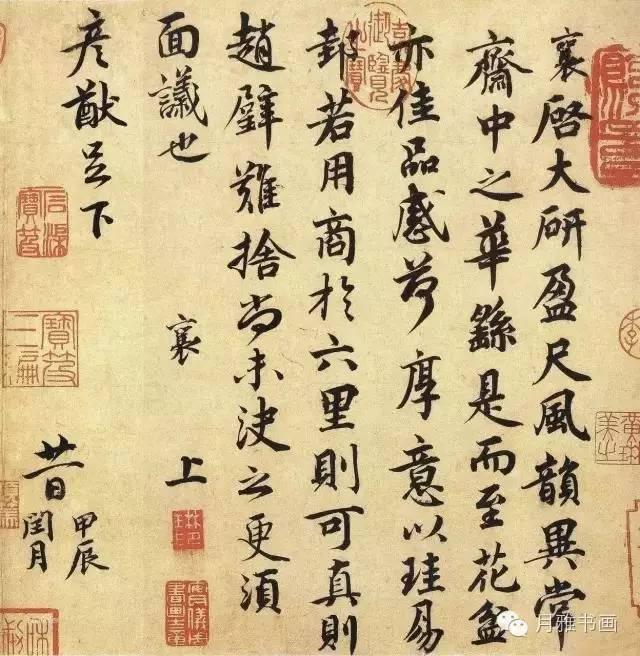 襄啓大研盈尺風韻異常
齋中之華繇是而至花盆
亦佳品感荷厚意以珪易
邽若用商於六里則可真則
趙璧難捨尚未決之更須
面議也
襄上
彥猷足下
廿一日
甲辰
閏月
黃琳美之
寶笈三編
月雅书画